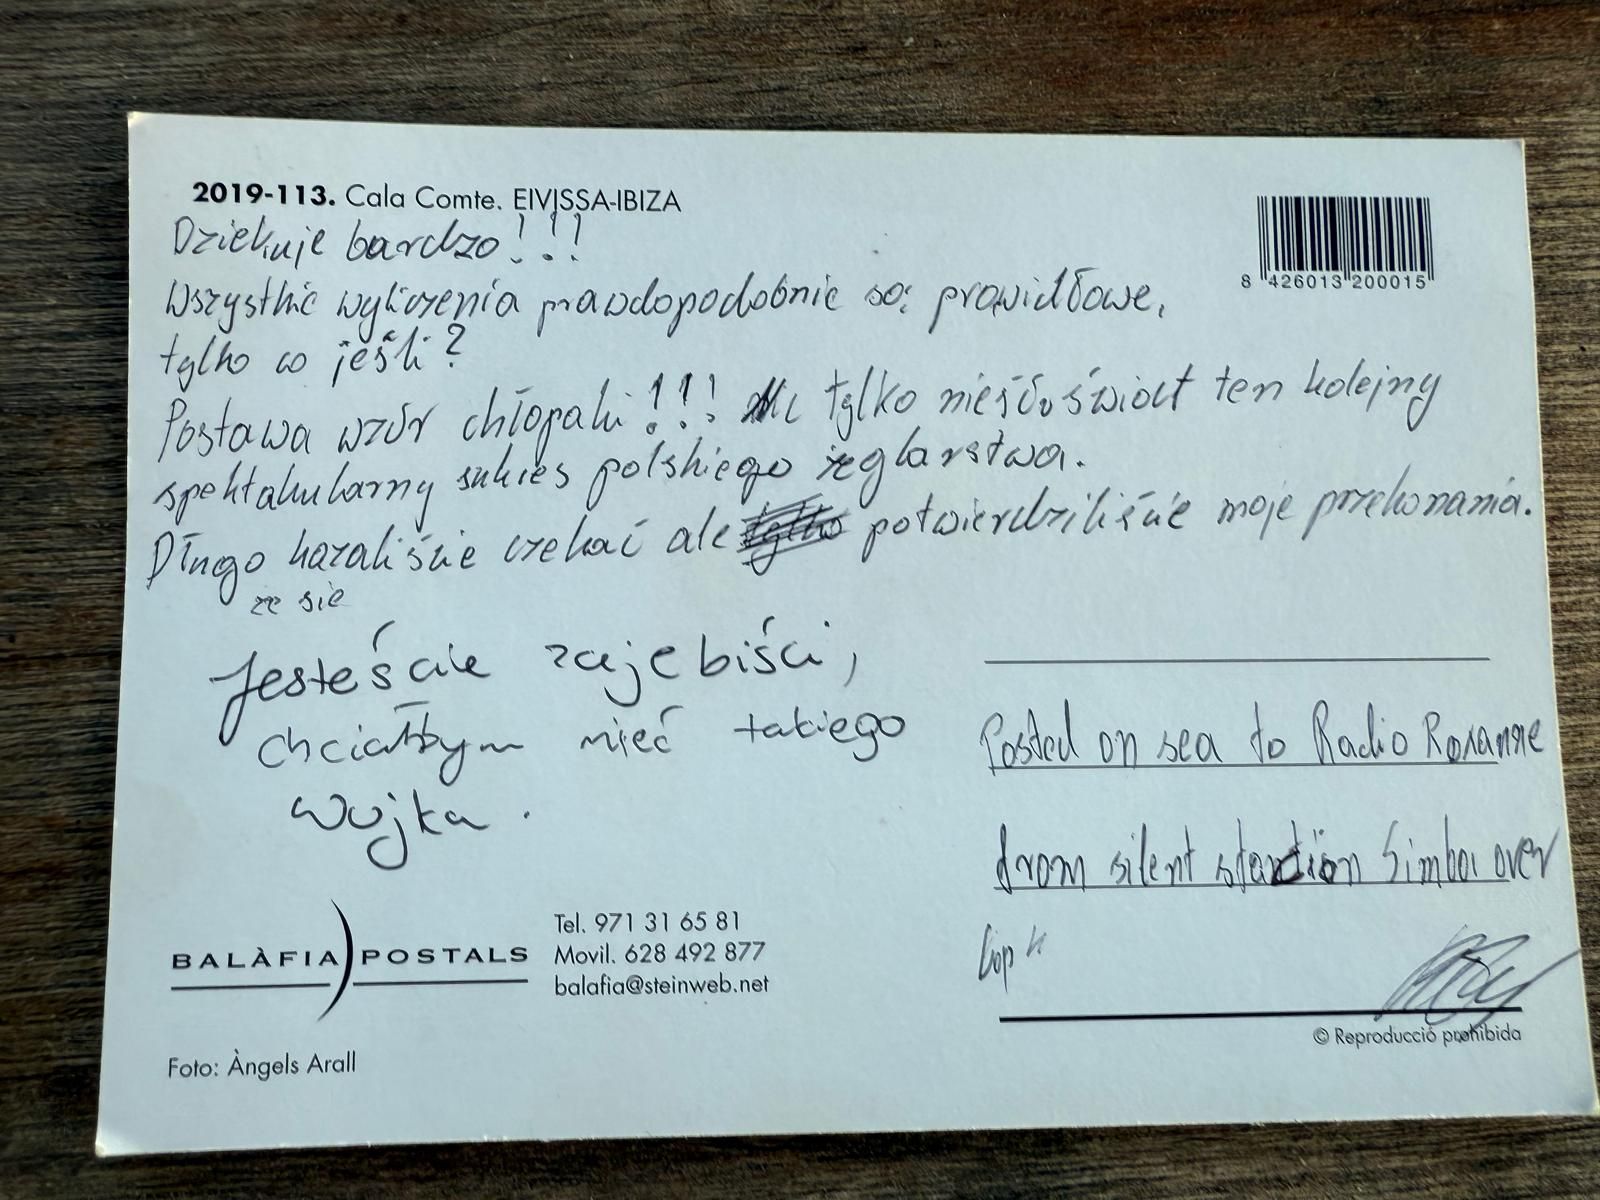 2019-113. Cala Comte. EIVISSA-IBIZA
8 426013 200015
Dziekuje bardzo!!!
Wszystkie wyliczenia prawdopodobnie są prawidłowe,
tylko co jeśli?
Postawa wzór chłopaki!!! tylko nieść w świat ten kolejny
spektakularny sukces polskiego żeglarstwa.
Długo kazaliście czekać ale potwierdziliście moje przekonania.
że sie
Jesteście zajebiści,
chciałbym mieć takiego
wujka.
Posted on sea to Radio Roxanne
from silent station Simba over
BALÀFIA POSTALS
Tel. 971 31 65 81
Movil. 628 492 877
balafia@steinweb.net
© Reproducció prohibida
Foto: Àngels Arall